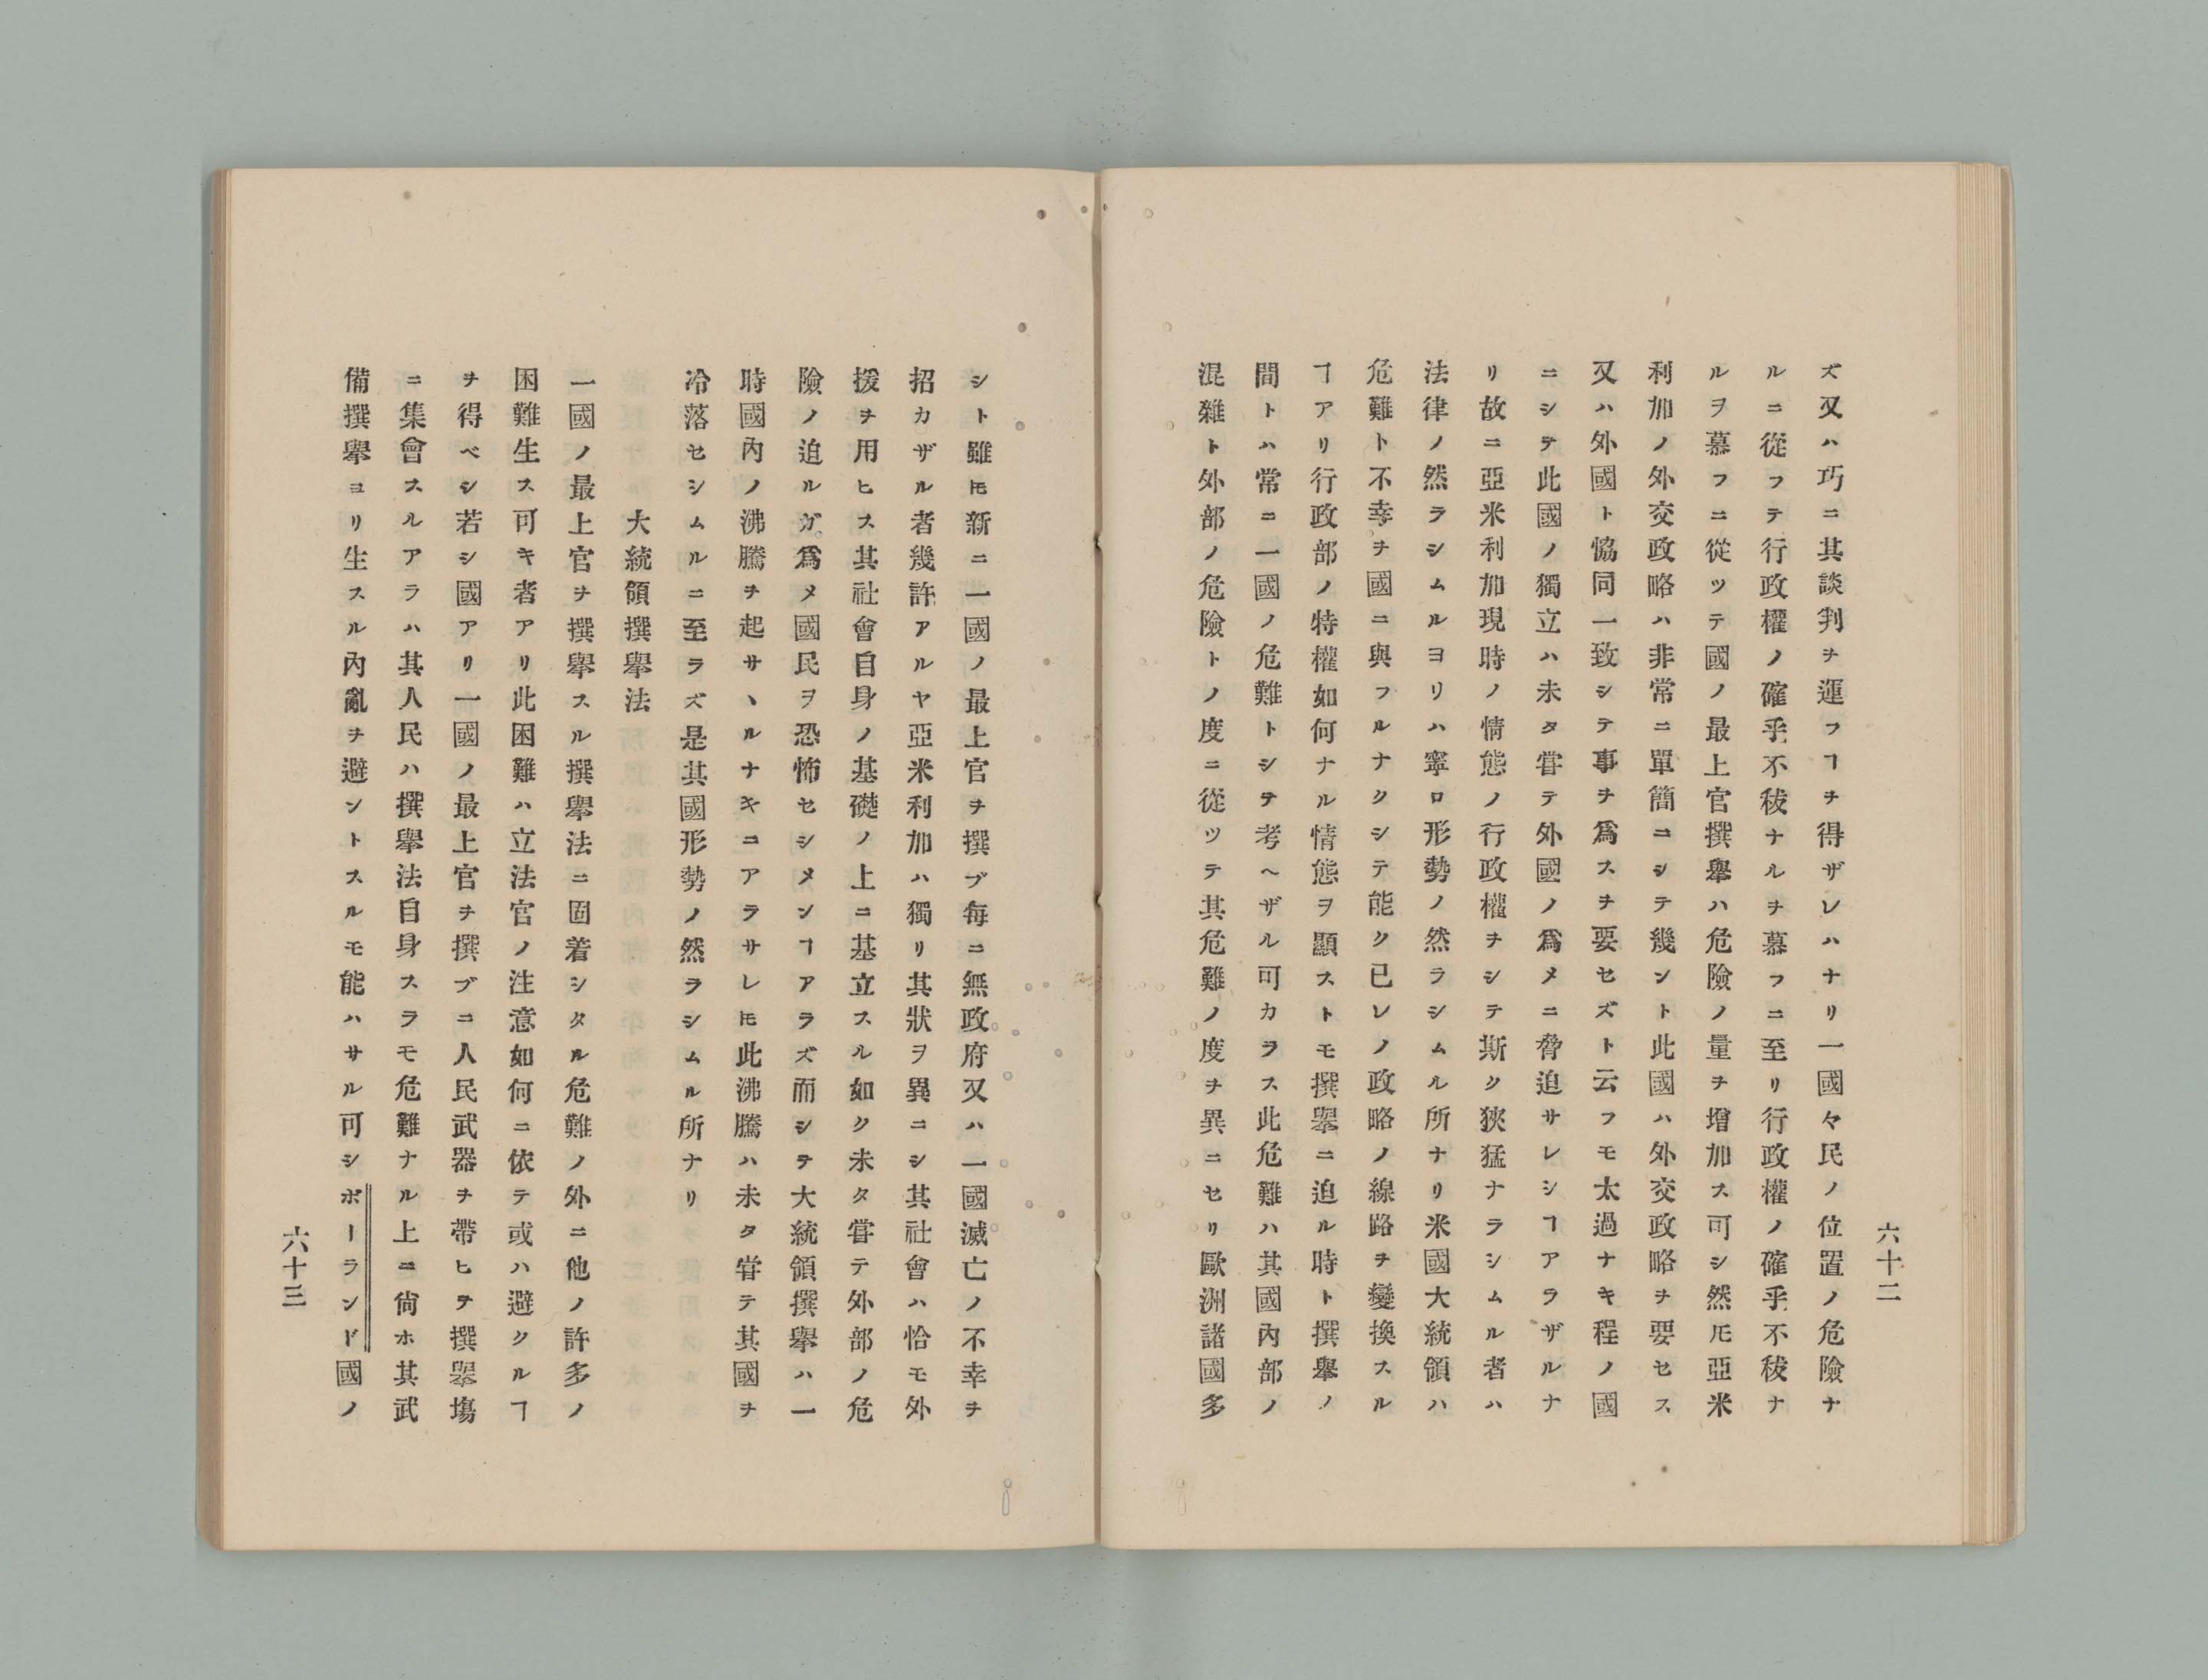 六十二
ズ又ハ巧ニ其談判ヲ運フヿヲ得ザレハナリ一國々民ノ位置ノ危險ナ
ルニ從フテ行政權ノ確乎不秡ナルヲ慕フニ至リ行政權ノ確乎不秡ナ
ルヲ慕フニ從ツテ國ノ最上官撰擧ハ危險ノ量ヲ增加ス可シ然𪜈亞米
利加ノ外交政略ハ非常ニ單簡ニシテ幾ント此國ハ外交政略ヲ要セス
又ハ外國ト恊同一致シテ事ヲ爲スヲ要セズト云フモ太過ナキ程ノ國
ニシテ此國ノ獨立ハ未タ甞テ外國ノ爲メニ脅迫サレシヿアラザルナ
リ故ニ亞米利加現時ノ情態ノ行政權ヲシテ斯ク狹猛ナラシムル者ハ
法律ノ然ラシムルヨリハ寧ロ形勢ノ然ラシムル所ナリ米國大統領ハ
危難ト不幸ヲ國ニ與フルナクシテ能ク已レノ政略ノ線路ヲ變換スル
ヿアリ行政部ノ特權如何ナル情態ヲ顯ストモ撰擧ニ迫ル時ト撰擧ノ
間トハ常ニ一國ノ危難トシテ考ヘザル可カラス此危難ハ其國內部ノ
混雜ト外部ノ危險トノ度ニ從ツテ其危難ノ度ヲ異ニセリ歐洲諸國多
シト雖𪜈新ニ一國ノ最上官ヲ撰ブ每ニ無政府又ハ一國滅亡ノ不幸ヲ
招カザル者幾許アルヤ亞米利加ハ獨リ其狀ヲ異ニシ其社會ハ恰モ外
援ヲ用ヒス其社會自身ノ基礎ノ上ニ基立スル如ク未タ甞テ外部ノ危
險ノ迫ルガ爲メ國民ヲ恐怖セシメンヿアラズ而シテ大統領撰擧ハ一
時國內ノ沸騰ヲ起サヽルナキニアラサレ𪜈此沸騰ハ未タ甞テ其國ヲ
冷落セシムルニ至ラズ是其國形勢ノ然ラシムル所ナリ
大統領撰擧法
一國ノ最上官ヲ撰擧スル撰擧法ニ固着シタル危難ノ外ニ他ノ許多ノ
困難生ス可キ者アリ此困難ハ立法官ノ注意如何ニ依テ或ハ避クルヿ
ヲ得ベシ若シ國アリ一國ノ最上官ヲ撰ブニ人民武器ヲ帶ヒテ撰擧塲
ニ集會スルアラハ其人民ハ撰擧法自身スラモ危難ナル上ニ尙ホ其武
備撰擧ヨリ生スル內亂ヲ避ントスルモ能ハサル可シポーランド國ノ
六十三